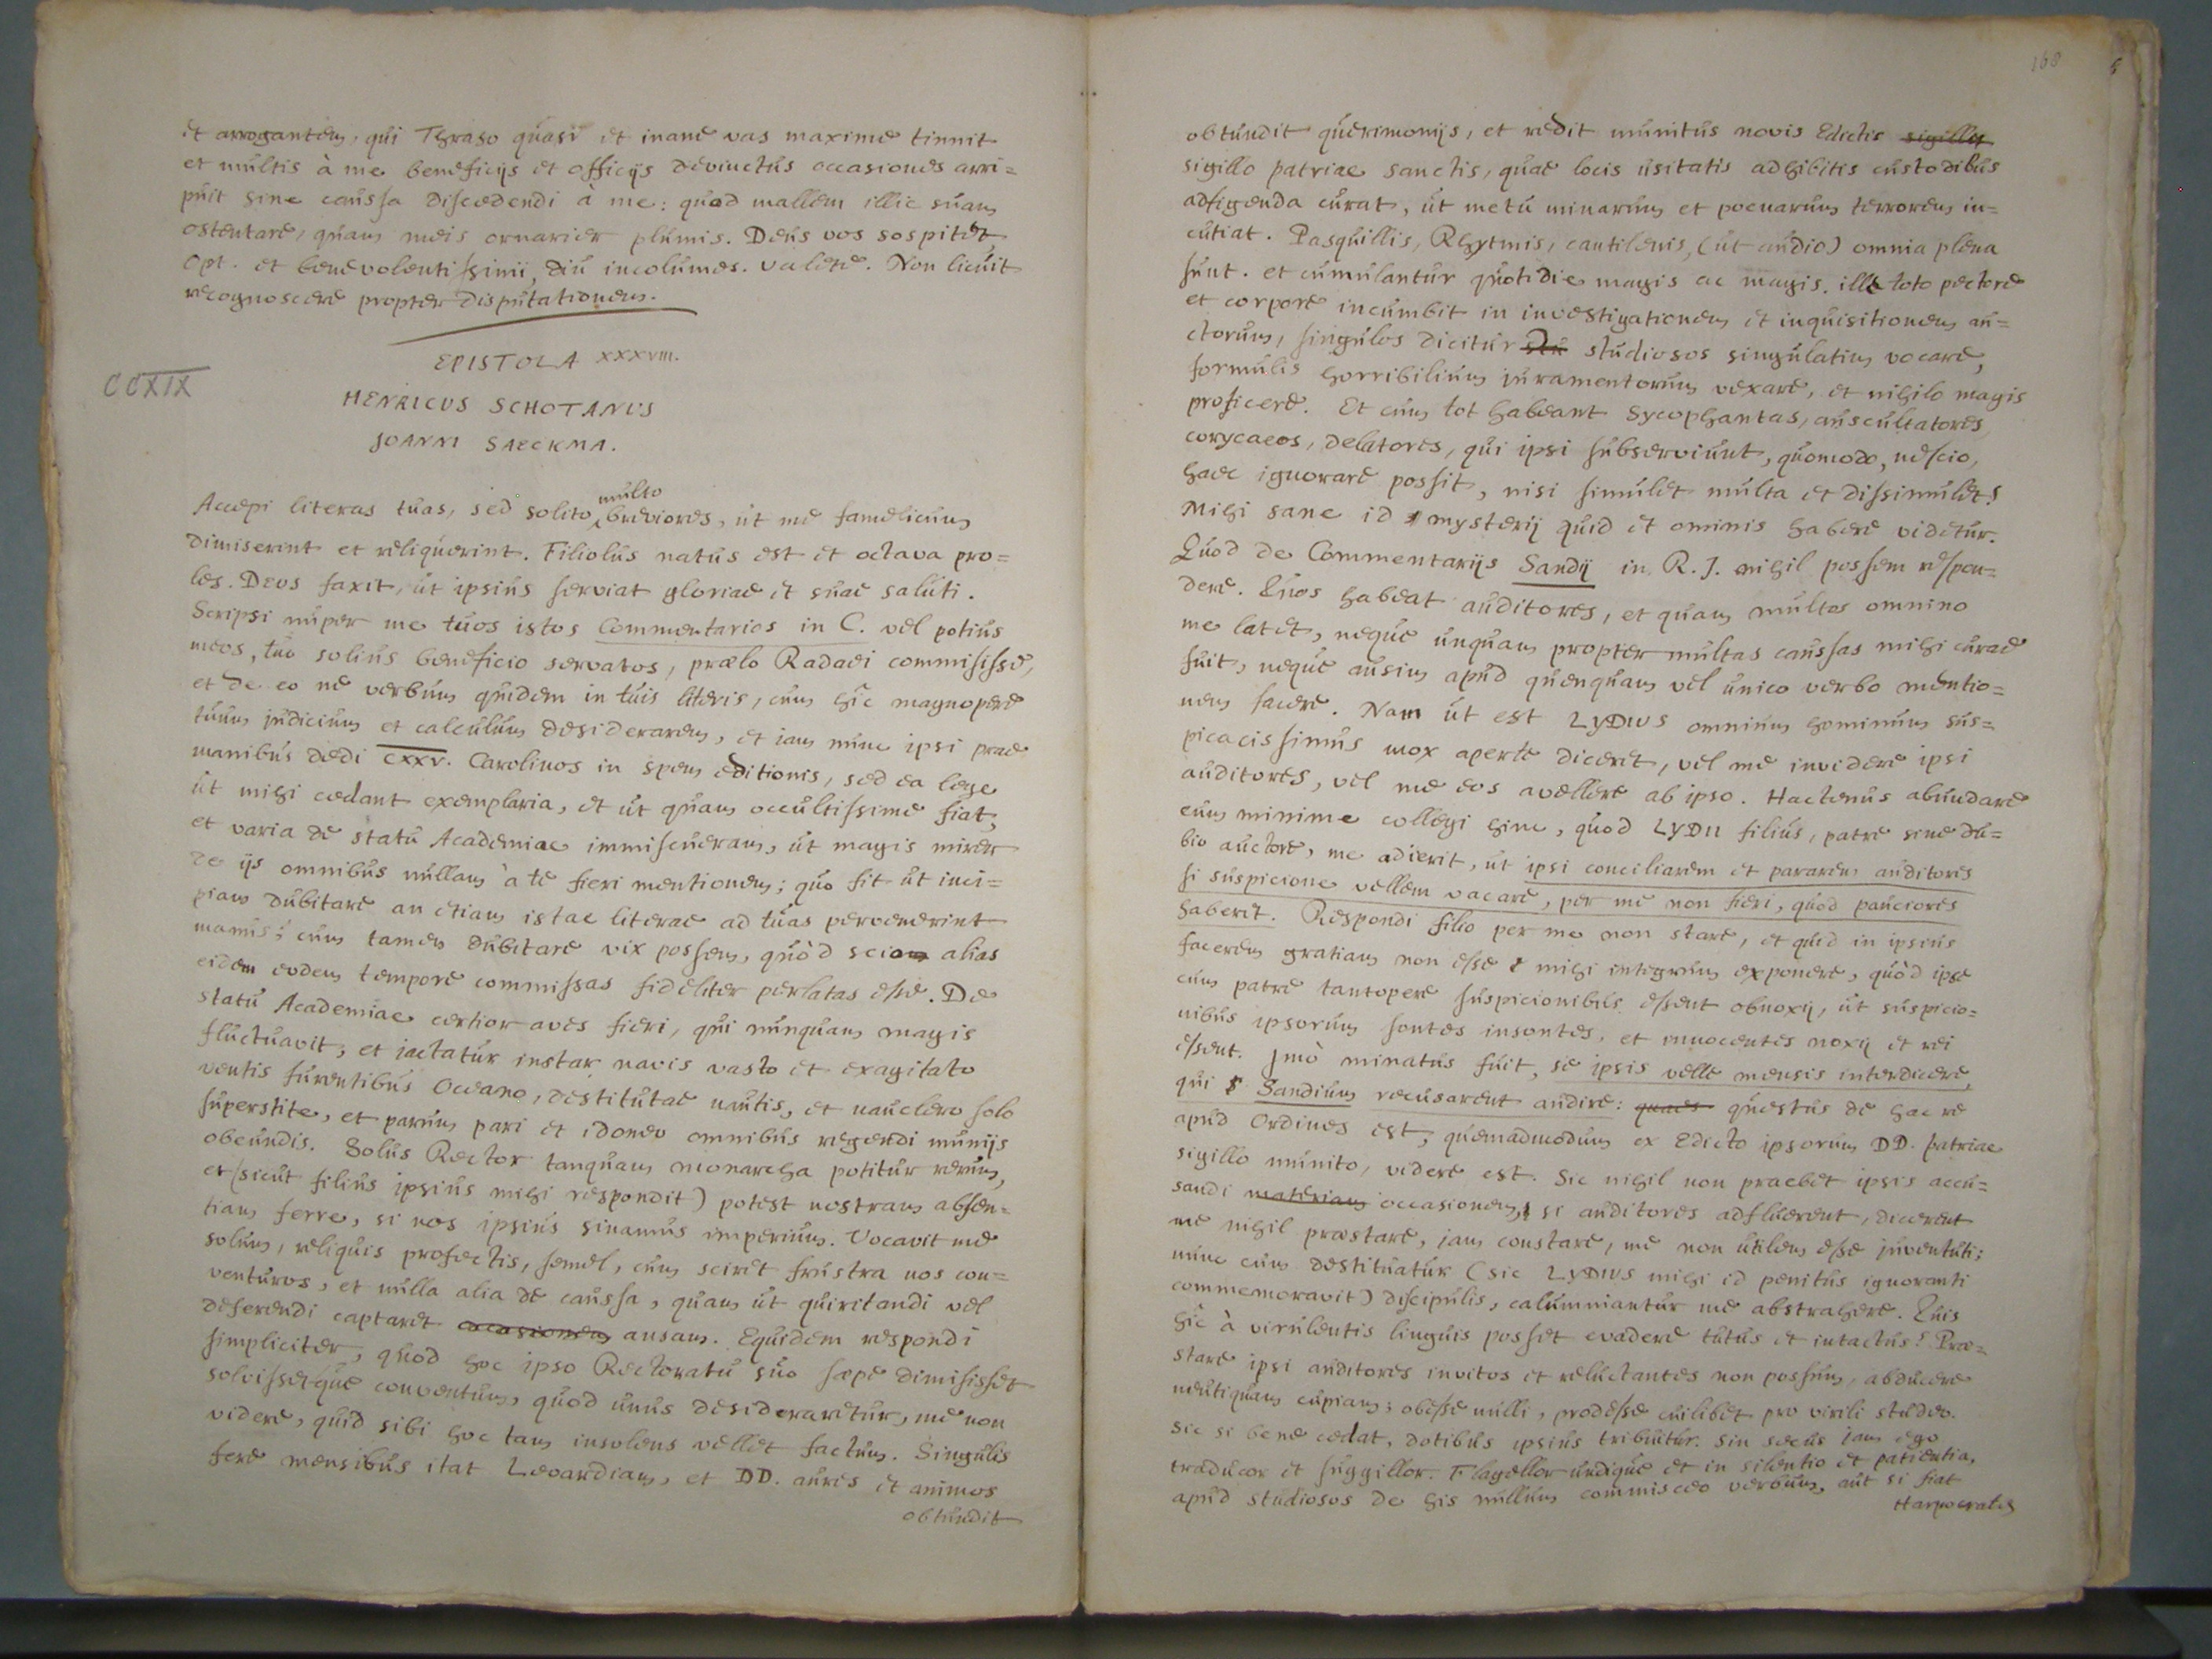 et arrogantem, qui Thraso quasi et inane vas maxime tinnit
et multis à me beneficijs et officijs devinctus occasiones arri=
puit sine caussa discedendi à me: quod mallem illic suam
ostentare, quam meis ornarier plumis. Deus vos sospitet,
opt. et benevolentissimi, diu incolumes. valete. Non licuit
recognoscere propter disputationem.
EPISTOLA XXXVIII.
CCXIX
HENRICUS SCHOTANUS
JOANNI SAECKMA.
multo
Accepi literas tuas, sed solito breviores, ut me famelicum
dimiserint et reliquerint. Filiolus natus est et octava pro=
les. Deus faxit, ut ipsius serviat gloriae et suae saluti.
Scripsi nuper me tuos istos Commentarios in C. vel potius
meos, tuo solius beneficio servatos, praelo Radaei commisisse,
et de eo ne verbum quidem in tuis literis, cum hîc magnopere
tuum judicium et calculum desiderarem, et iam nunc ipsi prae
manibus dedi CXXV. Carolinos in spem editionis, sed ea lege
ut mihi cedant exemplaria, et ut quam occultissime fiat,
et varia de statu Academiae immiscueram, ut magis mirer
de ijs omnibus nullam à te fieri mentionem; quo fit ut inci=
piam dubitare an etiam istae literae ad tuas pervenerint
manus; cum tamen dubitare vix possem, quòd sciam alias
eidem eodem tempore commissas fideliter perlatas esse. De
statu Academiae certior aves fieri, qui nunquam magis
fluctuavit, et jactatur instar navis vasto et exagitato
ventis furentibus Oceano, destitutae nautis, et nauclero solo
superstite, et parum pari et idoneo omnibus regendi munijs
obeundis. Solus Rector tanquam monarcha potitur rerum,
et (sicut filius ipsius mihi respondit) potest nostram absen=
tiam ferre, si nos ipsius sinamus imperium. Vocavit me
solum, reliquis profectis, semel, cum sciret frustra nos con=
venturos, et nulla alia de caussa, quam ut quiritandi vel
deferendi captaret occasionem ansam. Equidem respondi
simpliciter, quod hoc ipso Rectoratu suo saepe dimisisset
solvissetque conventum, quod unus desideraretur, me non
videre, quid sibi hoc tam insolens vellet factum. Singulis
fere mensibus itat Leoardiam, et DD. aures et animos
obtundit
168
obtundit querimonijs, et redit munitus novis Edictis sigillis
sigillo patriae sanctis, quae locis usitatis adhibitis custodibus
adfigenda curat, ut metu minarum et poenarum terrorem in=
cutiat. Pasquillis, Rhytmis, cantilenis, (ut audio) omnia plena
sunt. et cumulantur quotidie magis ac magis. ille toto pectore
et corpore incumbit in investigationem et inquisitionem au=
ctorum, singulos dicitur stu studiosos singulatim vocare,
formulis horribilium juramentorum vexare, et nihilo magis
proficere. Et cum tot habeant sycophantas, auscultatores
corycaeos, delatores, qui ipsi subserviunt, quomodo, nescio,
haec ignorare possit, nisi simulet multa et dissimulet!
Mihi sane id mysterij quid et ominis habere videtur.
Quod de Commentarijs Sandij in R. J. nihil possem respon=
dere. Quos habeat auditores, et quam multos omnino
me latet, neque unquam propter multas caussas mihi curae
fuit, neque ausim apud quenquam vel unico verbo mentio=
nem facere. Nam ut est LYDIUS omnium hominum sus=
picacissimus mox aperte diceret, vel me invidere ipsi
auditores, vel me eos avellere ab ipso. Hactenus abundare
eum minime collegi hinc, quod LYDII filius, patre sine du=
bio auctore, me adierit, ut ipsi conciliarem et pararem auditores
si suspicione vellem vacare, per me non fieri, quod pauciores
haberet. Respondi filio per me non stare, et quid in ipsius
facerem gratiam non esse mihi integrum exponere, quòd ipse
cum patre tantopere suspicionibus essent obnoxij, ut suspicio=
nibus ipsorum sontes insontes, et innocentes noxij et rei
essent. Imò minatus fuit, se ipsis velle mensis interdicere,
qui Sandium recusarent audire: quaes questus de hac re
apud Ordines est, quemadmodum ex Edicto ipsorum DD. patriae
sigillo munito, videre est. Sic nihil non praebet ipsis accu=
sandi materiam occasionem, si auditores adfluerent, dicerent
me nihil praestare, iam constare, me non utilem esse juventuti;
nunc cum destituatur (sic LYDIUS mihi id penitus ignoranti
commemoravit) discipulis, calumniantur me abstrahere. Quis
hîc à virulentis linguis posset evadere tutus et intactus? Prae=
stare ipsi auditores invitos et reluctantes non possum, abducere
neutiquam cupiam; obesse nulli, prodesse cuilibet pro virili studeo.
Sic si bene cedat, dotibus ipsius tribuitur. sin secus iam ego
traducor et suggillor. Flagellor undique et in silentio et patientia,
apud studiosos de his nullum commisceo verbum, aut si fiat
Harpocrates